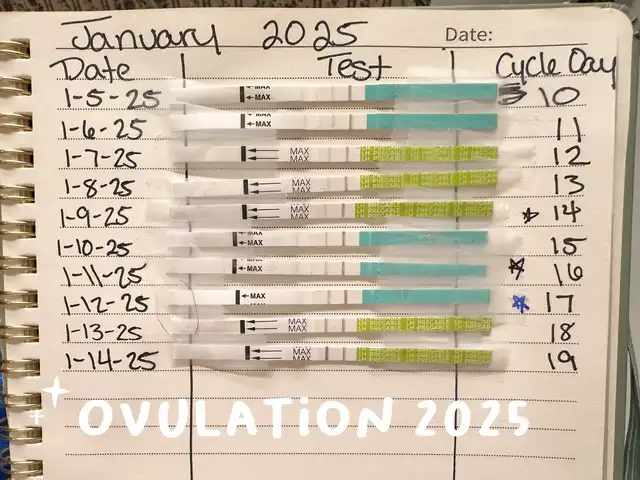 January 2025 Date:
Date Test Cycle Day
1-5-25 MAX MAX 10
1-6-25 MAX MAX 11
1-7-25 MAX MAX 12
1-8-25 MAX MAX 13
1-9-25 MAX MAX 14
1-10-25 MAX MAX 15
1-11-25 MAX MAX 16
1-12-25 MAX 17
1-13-25 MAX MAX 18
1-14-25 MAX MAX 19
OVULATiON 2025